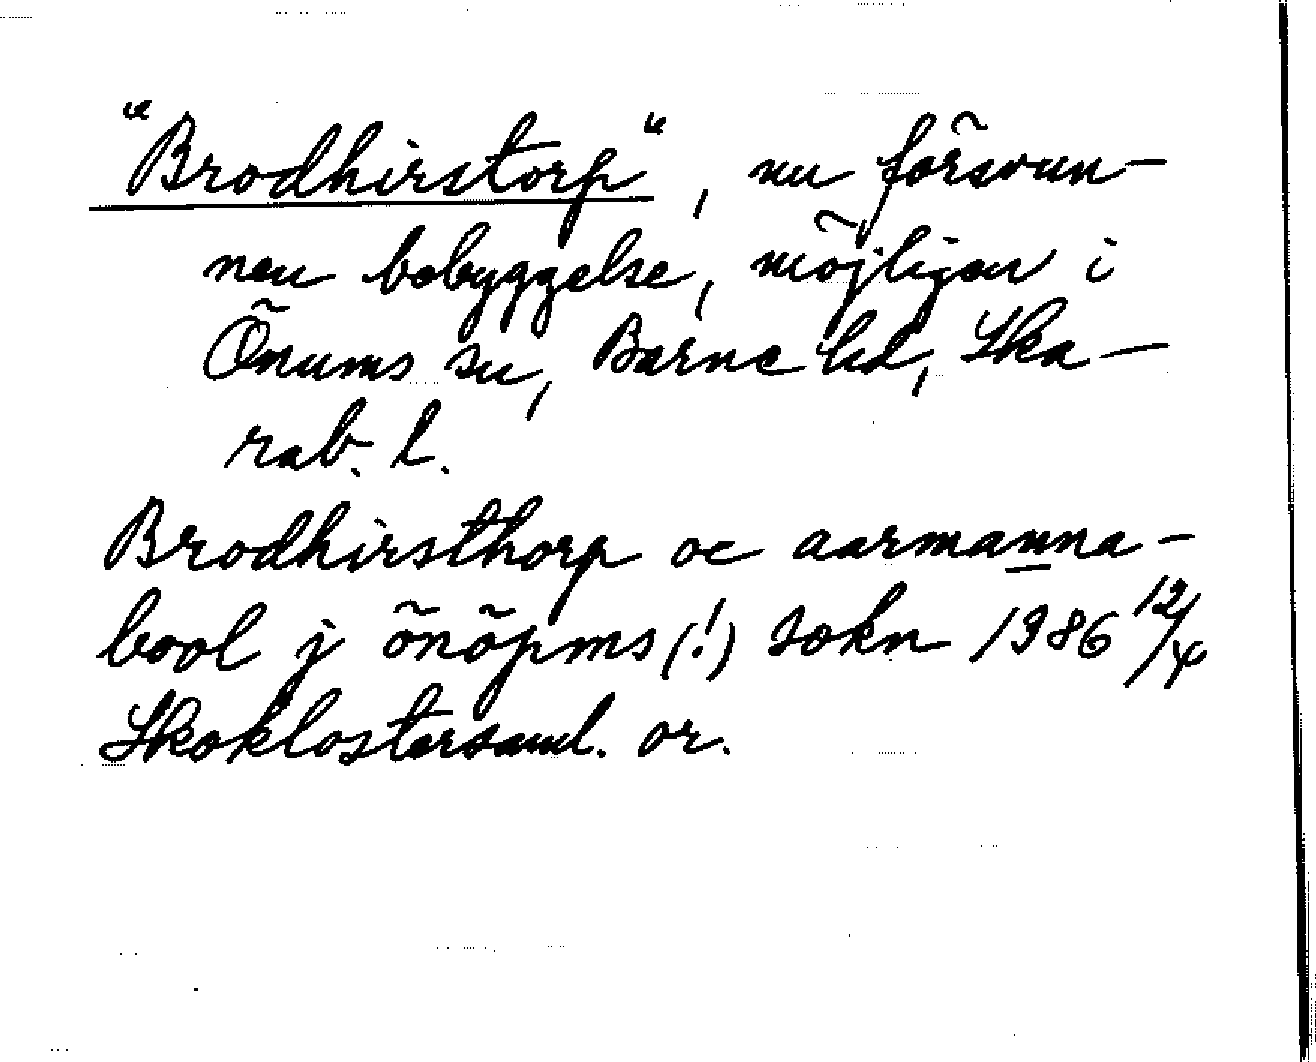 "Brodhirstorp", nu försvun-
nen bebyggelse, möjligen i
Önums sn, Barne hd, Ska-
rab. l.
Brodhirsthorp oc aarmanna-
bool j önöpms (!) sokn 1386 12/4
Skoklostersaml. or.